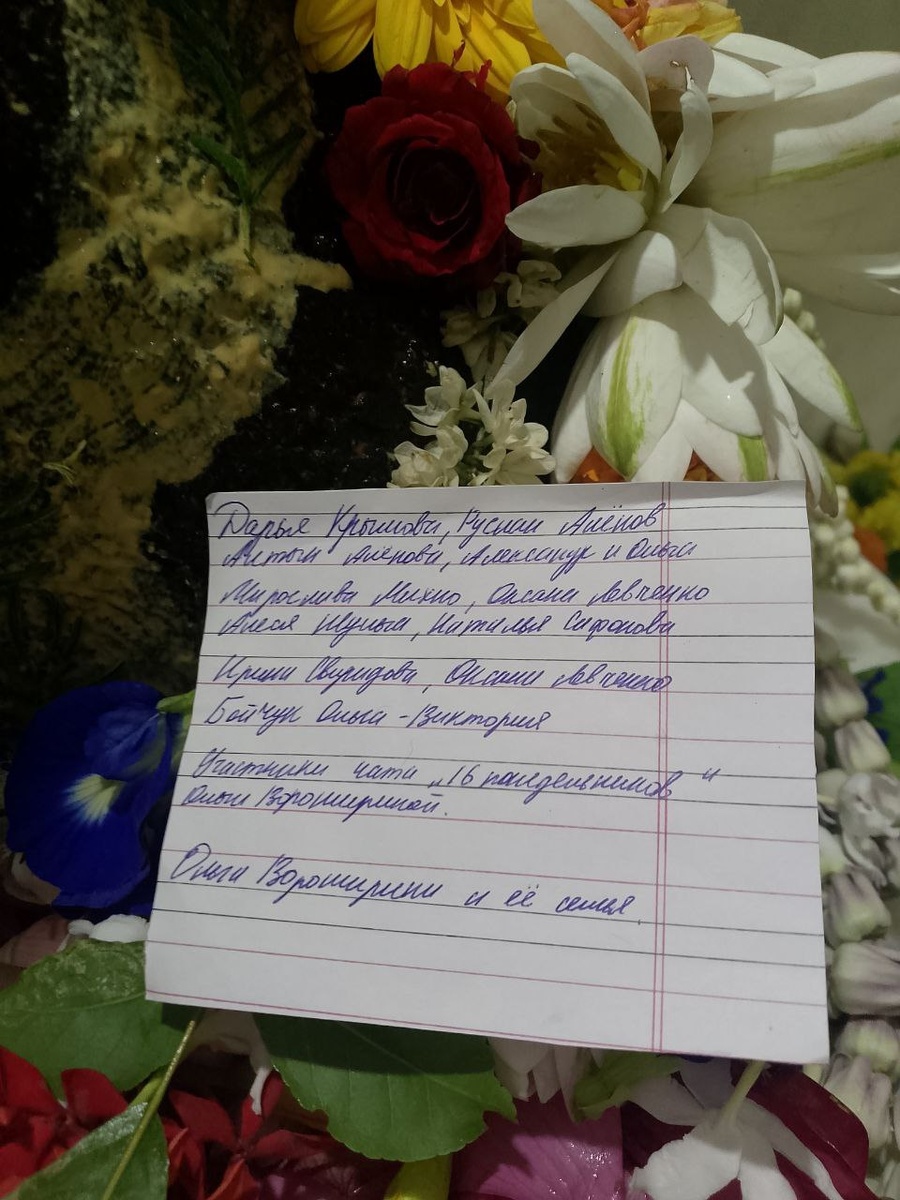 Дарья Крымова, Руслан Аленов
Алтын Аленова, Александр и Ольга
Мирослава Михно, Оксана Левченко
Алеся Шульга, Наталья Сафонова
Ирина Свиридова, Оксана Левченко
Бойчук Ольга - Виктория
Участники чата „16 понедельников“
Ольги Ворошириной.
Ольга Вороширина и её семья.